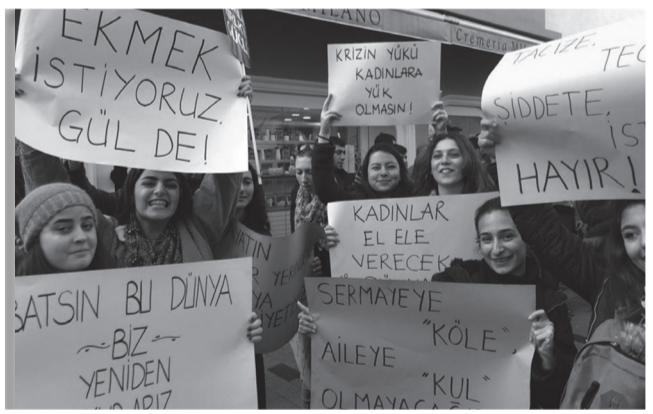 MILANO
Cremeria
EKMEK
İSTİYORUZ.
GÜL DE!
KRİZİN YÜKÜ
KADINLARA
YÜK
OLMASIN!
TACİZE, TEC
ŞİDDETE,
İS
HAYIR!
KADINLAR
EL ELE
VERECEK
BATSIN BU DÜNYA
~BİZ~
YENİDEN
SERMAYEYE
"KÖLE",
AİLEYE
"KUL"
OLMAYACAĞ